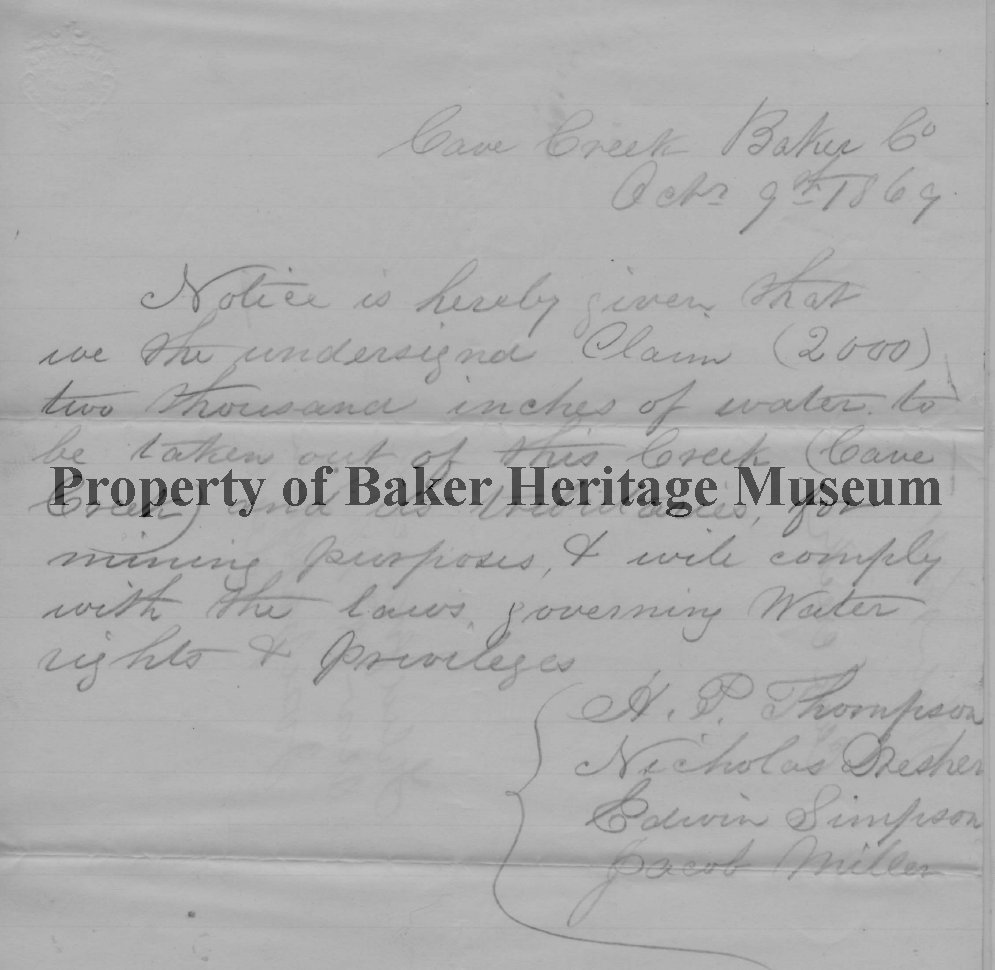 Cave Creek Baker Co
Octr 9th 1869
Notice is hereby given that
we the undersignd Claim (2000)
two thousand inches of water to
be taken out of this Creek (Cave
Property of Baker Heritage Museum
Creek) and its tributaries, for
mining purposes, & will comply
with the laws governing Water
rights & Privileges
H. P. Thompson
Nicholas
Edwin Simpson
Jacob Miller